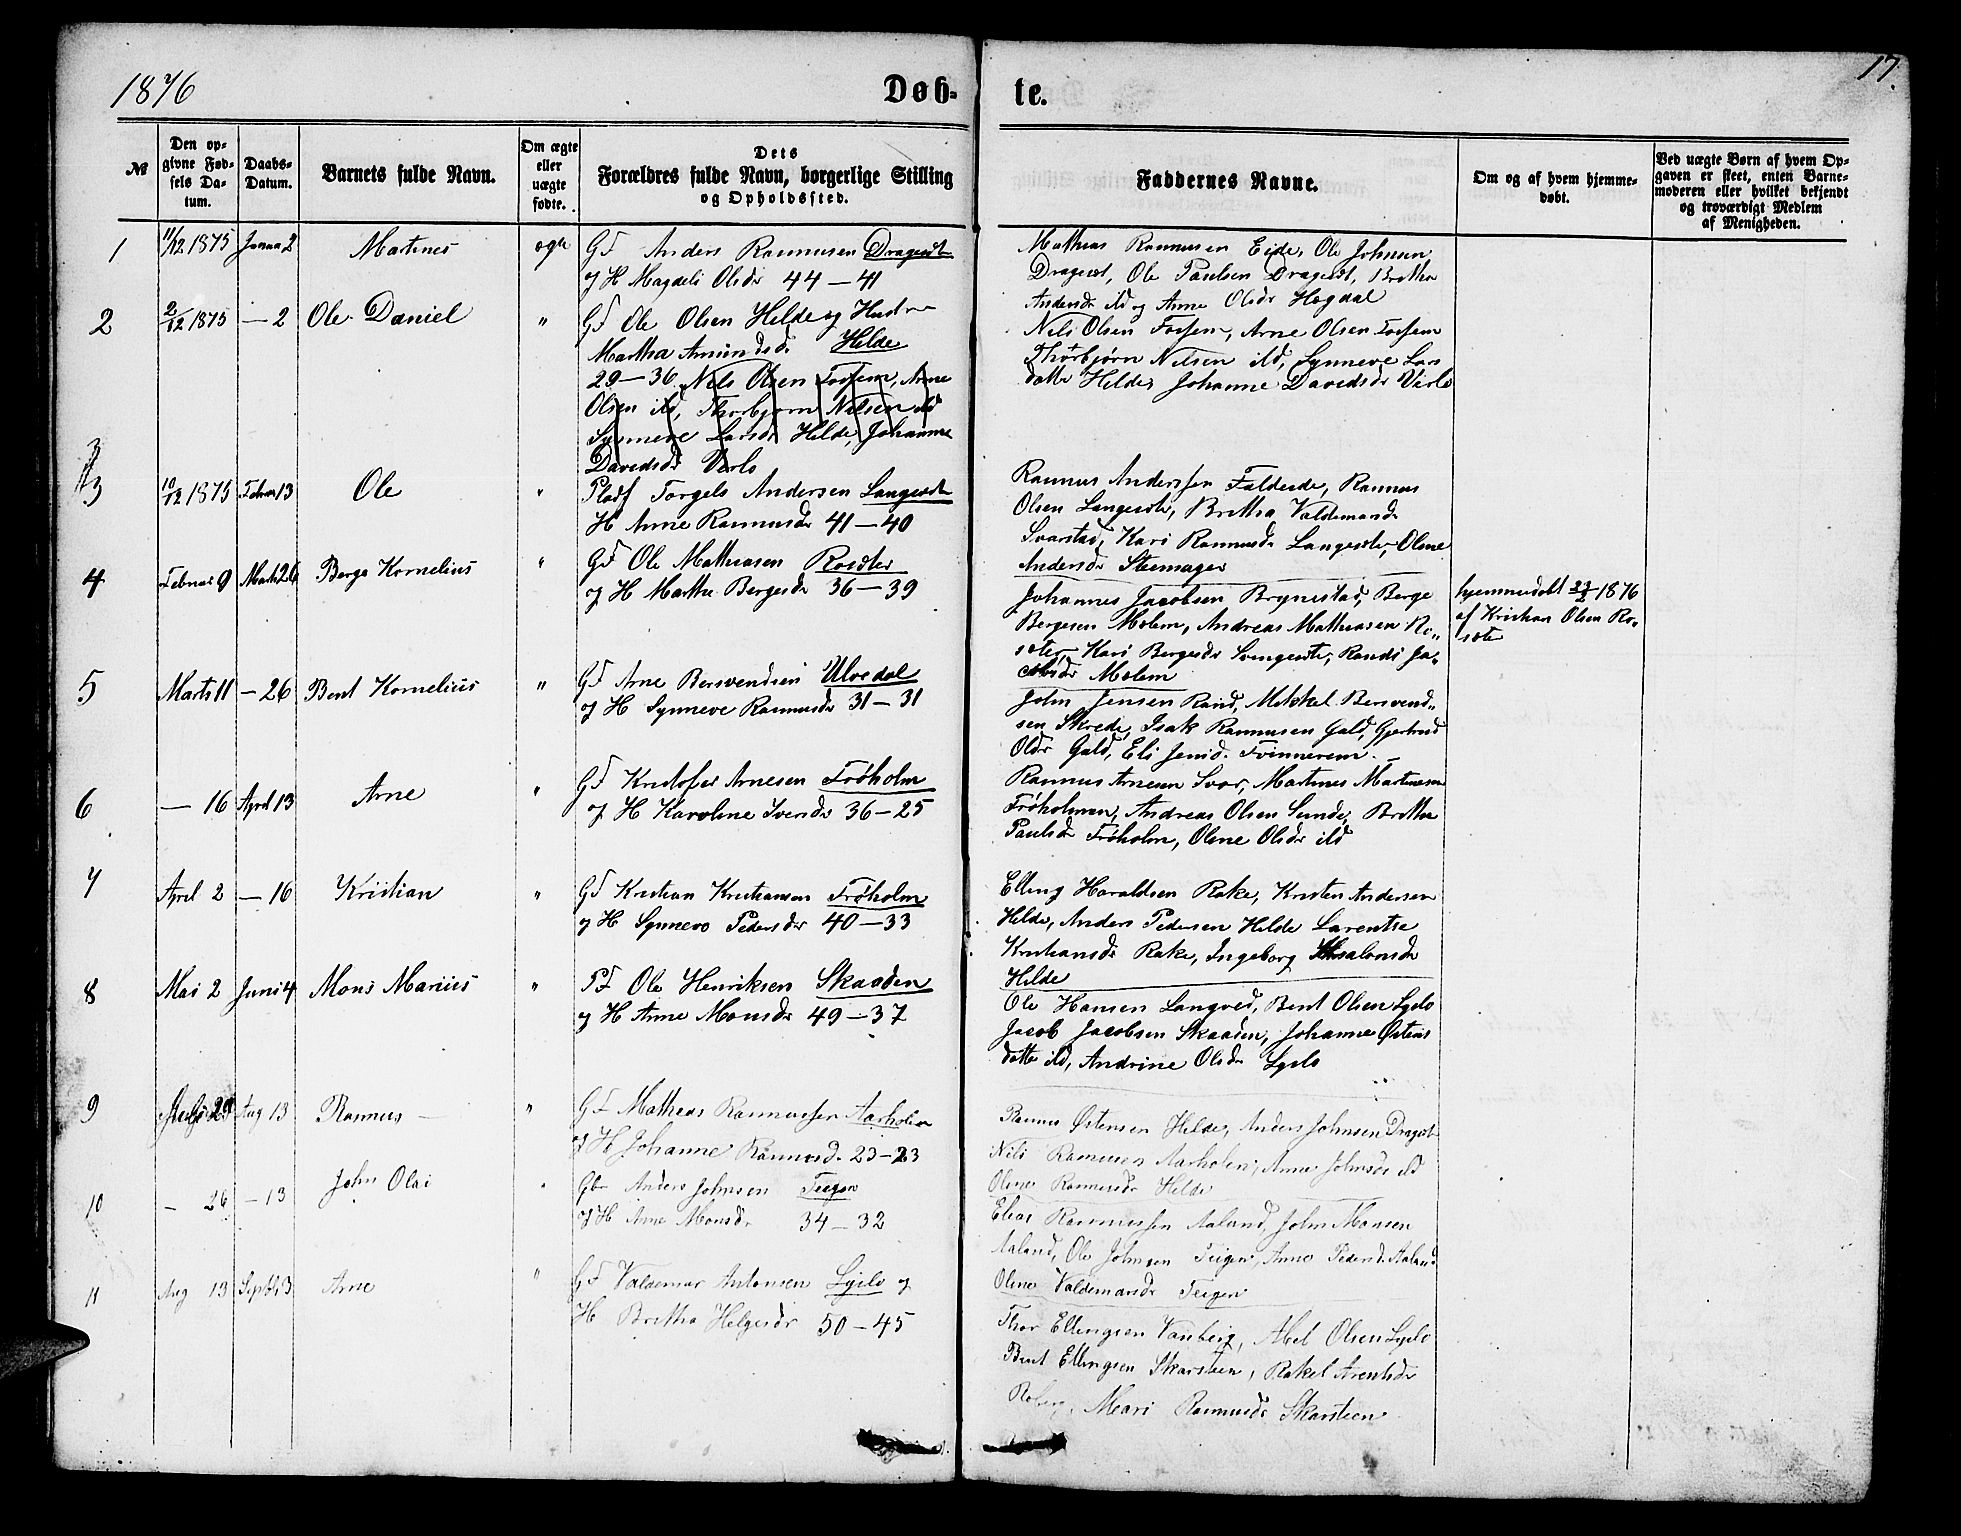 1876
Døb-
te.
17.
№
Den op-
givne Fød-
sels Da-
tum.
Daabs-
Datum.
Barnets fulde Navn.
Om ægte
eller
uægte
fødte.
Dets
Forældres fulde Navn, borgerlige Stilling
og Opholdssted.
Faddernes Navne.
Om og af hvem hjemme-
døbt.
Ved uægte Børn af hvem Op-
gaven er skeet, enten Barne-
moderen eller hvilket bekjendt
og troværdigt Medlem
af Menigheden.
1
11/12 1875
Januar 2
Martines
egte
GF Anders Rasmussen Dragesæt
og H Magdeli Olsdr 44 — 41
Mathias Rasmussen Eide, Ole Johnsen
Dragesæt, Ole Paulsen Dragesæt, Brithe
Andersdr ibd og Anne Olsdr Hogdal
2
2/12 1875
— 2
Ole Daniel
"
GF Ole Olsen Hilde og Hustru
Martha Amundsd. Hilde
29 — 36 Nils Olsen Fossem, Arne
Olsen ibd, Thorbjørn Nilsen ibd
Synneve Larsdr Hilde, Johanne
Davidsdr Verlo
Nils Olsen Fossem, Arne Olsen Fossem
Thorbjørn Nilsen ibd, Synneve Lars
datter Hilde, Johanne Davidsdr Verlo
3
3
10/12 1875
Febru 13
Ole
"
Pladf Torgels Andersen Langesæter
H Anne Rasmusdr 41 — 40
Rasmus Anderssen Faldeide, Rasmus
Olsen Langesæter, Britha Valdemarsdr
Svarstad, Kari Rasmusdr Langesæter, Oline
Andersdr Steensager
4
Februar 9
Marts 26
Berge Kornelius
"
GF Ole Mathiasen Rosæter
og H Marthe Bergesdr 36 — 39
Johannes Jacobsen Brynestad, Berge
Bergesen Molem, Andreas Mathiasen Ro-
sæter, Kari Bergesdr Svingesæter, Randi Ja-
cobsdr Molem
hjemmedøbt 23/2 1876
af Kristian Olsen Ro-
sæter
5
Marts 11
— 26
Bent Kornelius
"
GF Arne Bersvendsen Ulvedal
og H Synneve Rasmusdr 31 — 31
John Jensen Raad, Mikkel Bersvend-
sen Skrede, Isak Rasmusen Gald, Gjertrud
Olsdr Gald, Eli Jensd. Tvinnerem.
6
— 16
April 13
Arne
"
GF Kristofer Arnesen Frøholm
og H Karoline Iversdr 36 — 25
Rasmus Arnesen Svor, Martines Martinesen
Frøholmen, Andreas Olsen Sunde, Brithe
Paulsdr Frøholm, Oline Olsdr ibd
7
April 2
— 16
Kristian
"
GF Kristian Kristiansen Frøholm
og H Synneve Pedersdr 40 — 33
Elling Haraldsen Rake, Kristen Andersen
Hilde, Anders Pedersen Hilde Larentse
Kristiansdr Rake, Ingeborg Absalonsdr
Hilde
8
Mai 2
Juni 4
Mons Marius
"
PF Ole Henriksen Skaaden
og H Anne Monsdr 49 — 37
Ole Hansen Langved, Bent Olsen Lyslo
Jacob Jacobsen Skaaden, Johanne Østens
datter ibd, Andrine Olsdr Lyslo
9
29
Aug 13
Rasmus —
"
GF Mathias Rasmussen Aarholen
og H Johanne Rasmusd. 23 — 23
Rasmus Østensen Hilde, Anders Johnsen Dragesæt
Nils Rasmusen Aarholen, Anne Johnsdr ibd
Oline Rasmusdr Hilde
10
— 26
— 13
John Olai
"
Gbr Anders Johnsen Teigen
og H Anne Monsdr 34 — 32
Elias Rasmussen Aaland, John Monsen
Aaland, Ole Johnsen Teigen, Anne Pedersd. Aaland
Oline Valdemarsdr Teigen
11
Aug 13
Septb 3
Arne
"
GF Valdemar Antonsen Lyslo og
H Britha Helgesdr 50 — 45
Thor Ellingsen Vanberg, Abel Olsen Lyslo
Bent Ellingsen Skarsteen, Rakel Arentsdr
Roberg, Mari Rasmusdr Skarsteen